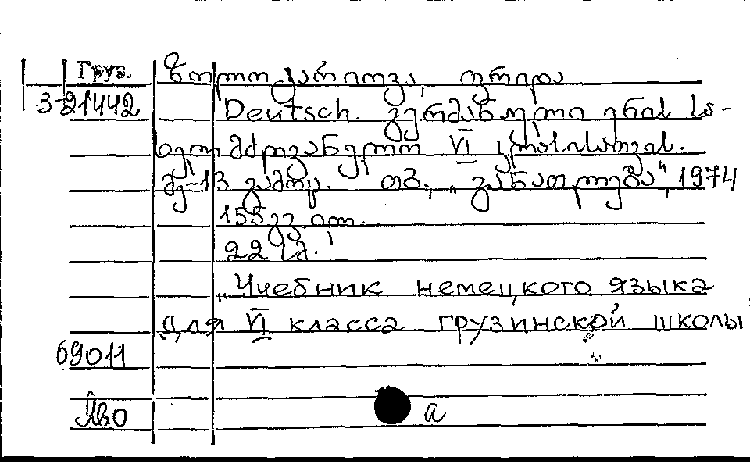 Груз. ზოლოტარიოვა, ირიდა
3-21442 Deutsch. გერმანული ენის სა-
ხელმძღვანელო VI კლასისათვის.
მე-13 გამოც. თბ., „განათლება", 1974
155 გვ. ილ.
22 სმ.
„Учебник немецкого языка
для VI класса грузинской школы"
69011
а